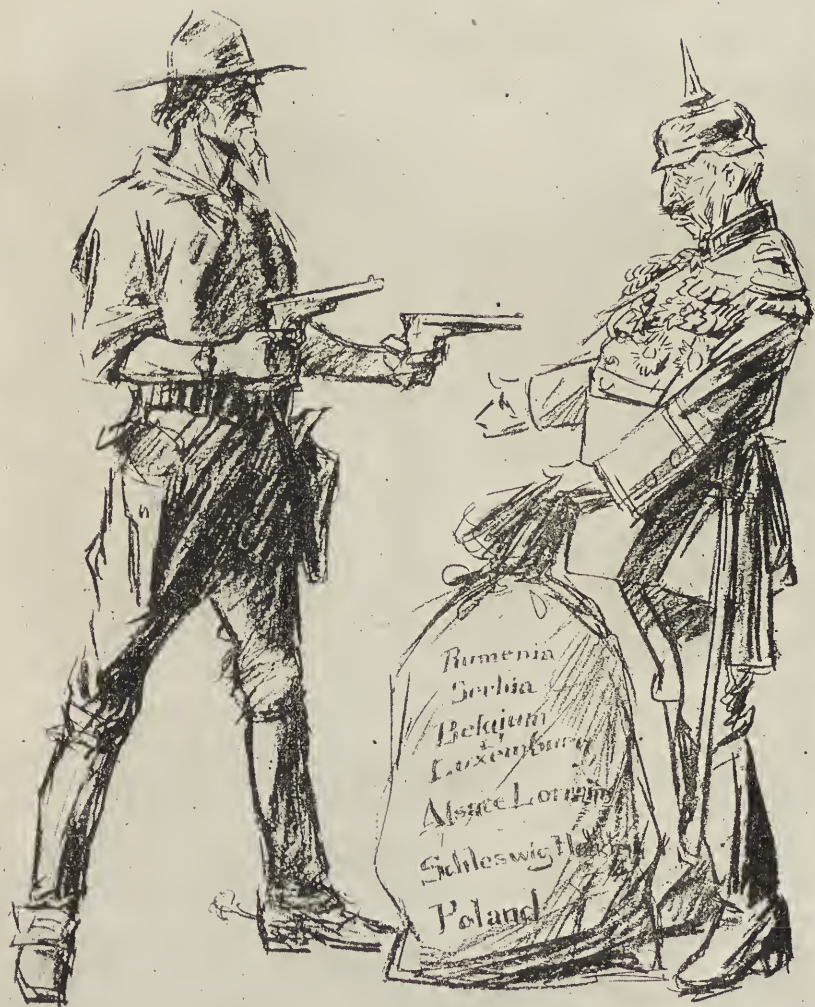 Rumenia
Serbia
Belgium
&
Luxemburg
Alsace Lorraine
Schleswig Holstein
Poland